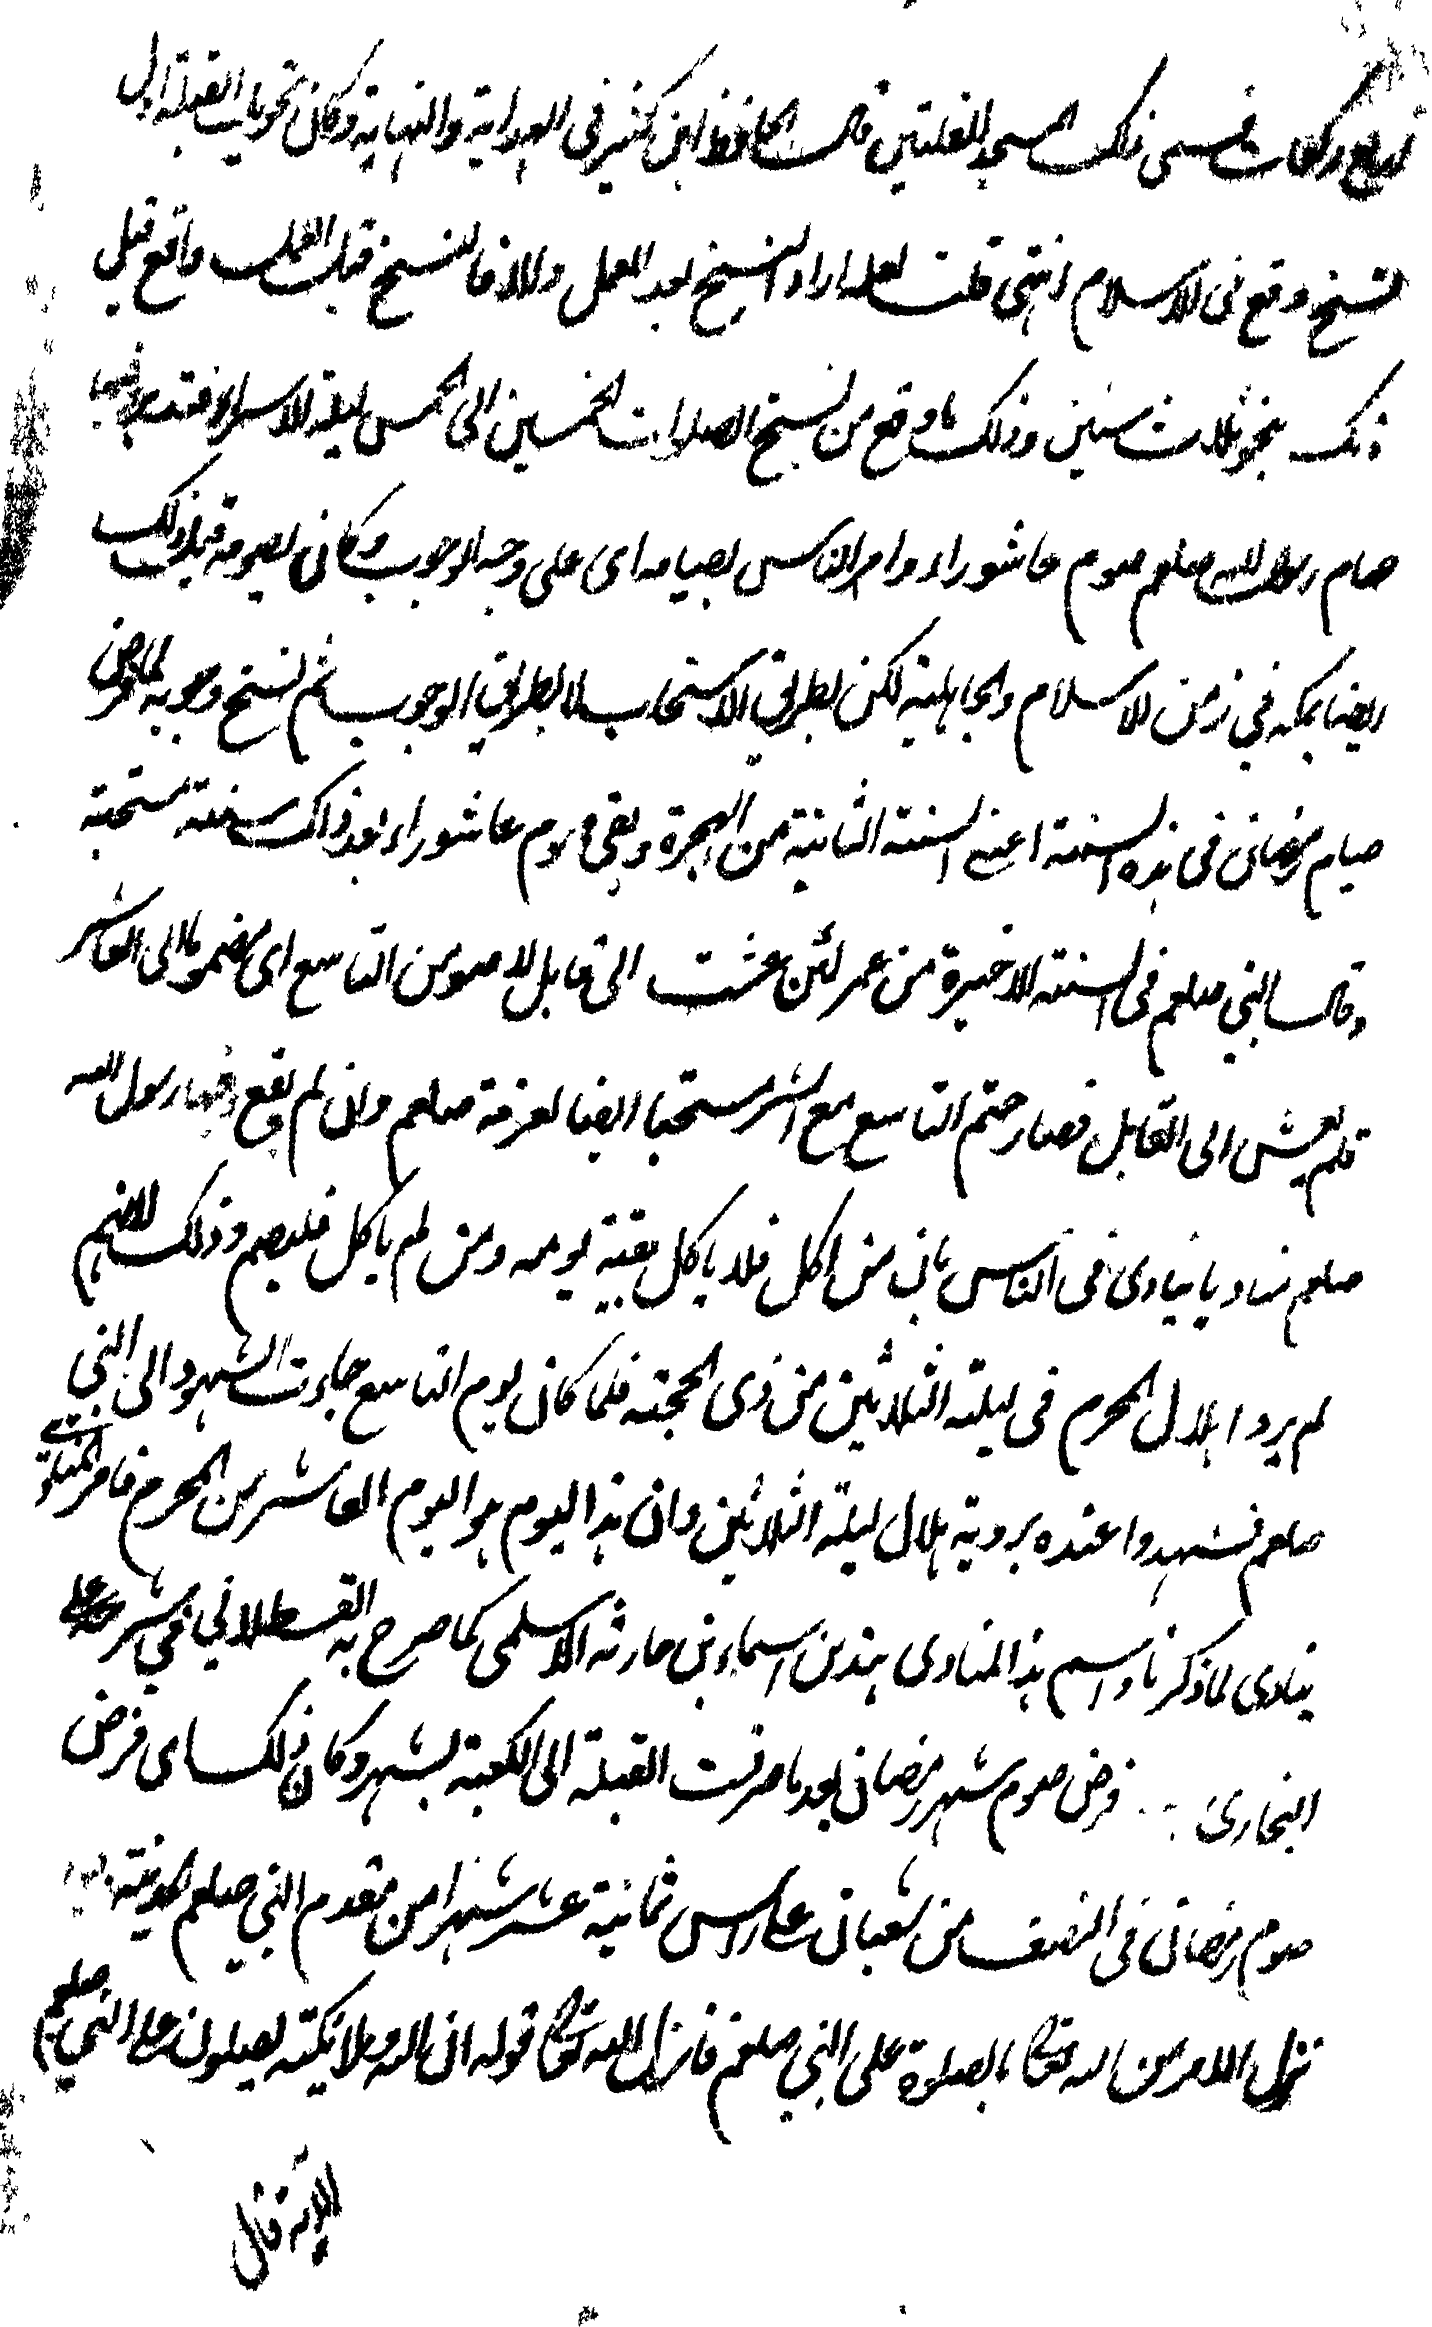 اربع ركعات فسمى ذلك المسجد القبلتين قال الحافظ ابن كثير في البداية والنهاية وكان تحويل القبلة اول
نسخ وقع في الاسلام انتهى قلت لعله اراد النسخ بعد العمل والا فالنسخ قبل العمل واقع قبل
ذلك بنحو ثلاث سنين وذلك ما وقع من نسخ الصلوات الخمسين الى الخمس ليلة الاسراء فتدبر
صام رسول الله صلعم صوم عاشوراء وامر الناس بصيامه اى على وجه الوجوب وكان يصومه قبل ذلك
ايضا بمكه في زمن الاسلام والجاهلية لكن بطريق الاستحباب لا بطريق الوجوب ثم نسخ وجوبه لما فرض
صيام رمضان في هذه السنة اعني السنة الثانية من الهجرة وبقي صوم عاشوراء بعد ذلك سنة مستحبة
وقال النبي صلعم في السنة الاخيرة من عمر لئن عشت الى قابل لاصومن التاسع اى مضموما الى العاشر
فلم يعش الى القابل فصار ضم التاسع مع العاشر مستحبا ايضا لعزمه صلعم وان لم يقع رسول الله
صلعم مناديا ينادى في الناس بان من اكل فلا ياكل بقية يومه ومن لم ياكل فليصم وذلك لانهم
لم يروا هلال المحرم في ليلة الثلاثين من ذى الحجة فلما كان يوم التاسع جاءت الشهود الى النبي
صلعم فشهدوا عنده بروية هلال ليلة الثلاثين وان هذا اليوم هو اليوم العاشر من المحرم فامر المنادى
ينادى لما ذكرنا واسم هذا المنادى هند بن اسماء بن حارثه الاسلمى كما صرح به القسطلاني في شرحه على
البخارى فرض صوم شهر رمضان بعد ما صرفت القبلة الى الكعبة بشهر وكان ذلك اى فرض
صوم رمضان في النصف من شعبان على راس ثمانية عشر شهرا من مقدم النبي صلعم المدينة
نزل الامر من الله تعالى بالصلوة على النبي صلعم فانزل الله تعالى قوله ان الله وملائكته يصلون على النبي صلعم
الآية قال